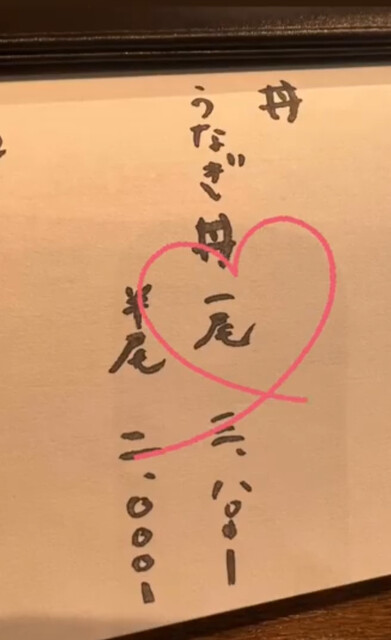 丼
うなぎ丼 一尾 三、八〇〇ー
半尾 二、〇〇〇ー